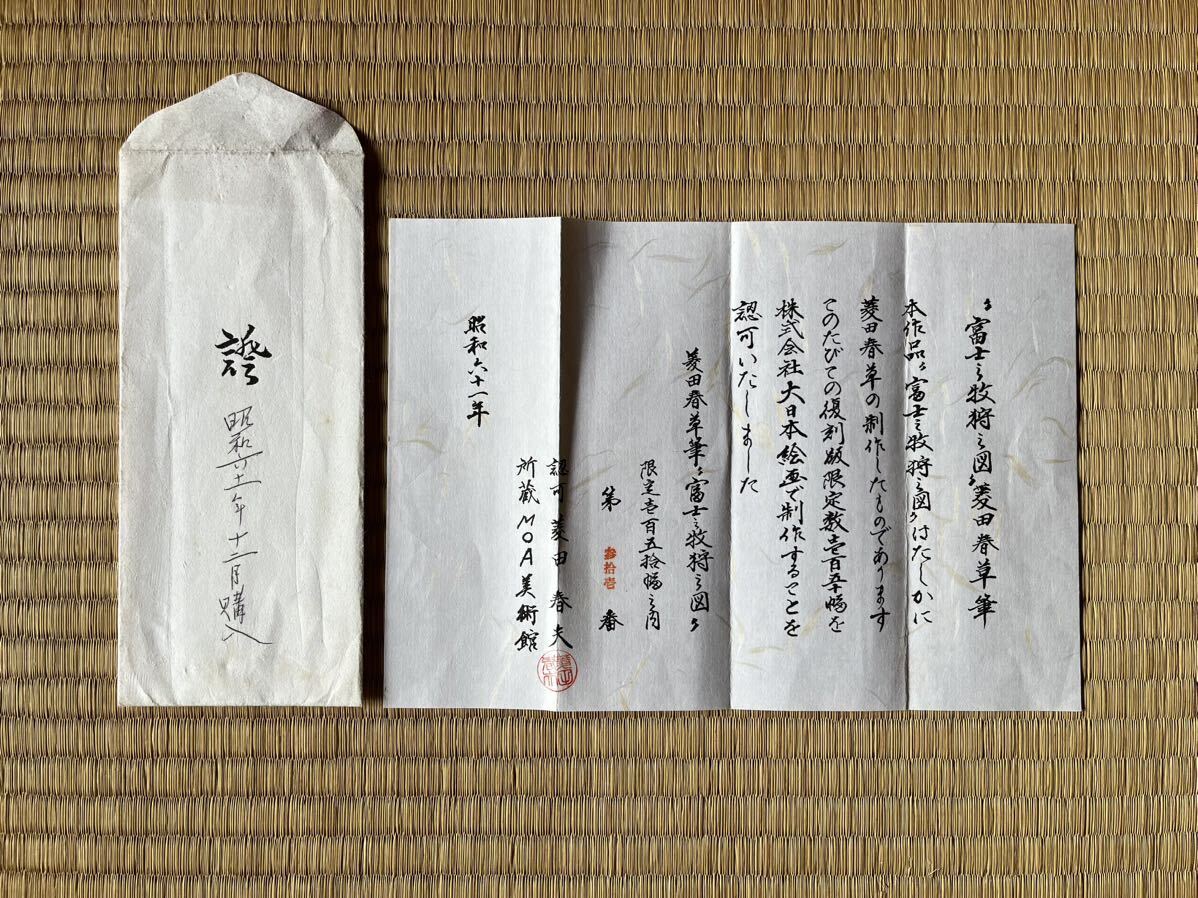 〝富士之牧狩之図〟菱田春草筆
本作品〝富士之牧狩之図〟はたしかに
菱田春草の制作したものであります
このたびこの復刻版限定数壱百五十幅を
株式会社大日本絵画で制作することを
認可いたしました
菱田春草筆〝富士之牧狩之図〟
限定壱百五拾幅之内
第参拾壱番
昭和六十一年
認可 菱田春夫
所蔵 MOA美術館
證
昭和六十一年十二月購入